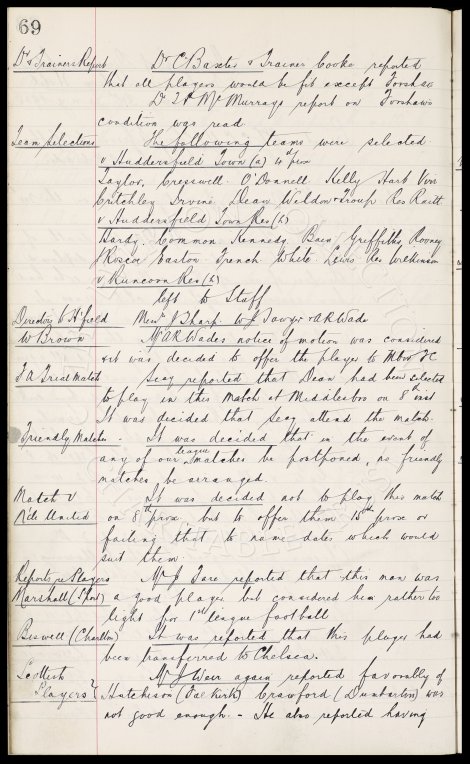 69
Dr & Trainers Report Dr C Baxter & Trainer Cooke reported
that all players would be fit except Forshaw
Dr McMurrays report on Forshaws
condition was read
Team Selections The following teams were selected
v Huddersfield Town (a) 10th prox
Taylor, Cresswell. O'Donnell Kelly Hart Virr
Critchley Irvine Dean Weldon & Troup Res Raitt
v Huddersfield Town Res (h)
Hardy. Common, Kennedy, Bain, Griffiths, Rooney
Roscoe Easton French White Lewis Res Wilkinson
v Runcorn Res (h)
left to Staff
Directors v H'field Messrs J Sharp W J Sawyer & A R Wade
W Brown Mr A R Wades notice of motion was considered
& it was decided to offer the player to
F A Trial Match Secy reported that Dean had been selected
to play in this match at Middlesbro on 8th inst
It was decided that Secy attend the match.
Friendly Matches. It was decided that in the event of
any of our league matches be postponed, no friendly
matches, be arranged.
Match v It was decided not to play this match
N'tle United on 8th prox, but to offer them 15th prox or
failing that to name dates which would
suit them.
Reports re Players Mr J Fare reported that this man was
Marshall (S'port) a good player but considered him rather too
light for 1st league football
Biswell (Charlton) It was reported that this player had
been transferred to Chelsea.
Scottish Mr J Weir again reported favorably of
Players Hutchison (Falkirk) Crawford (Dumbarton) was
not good enough. - He also reported having